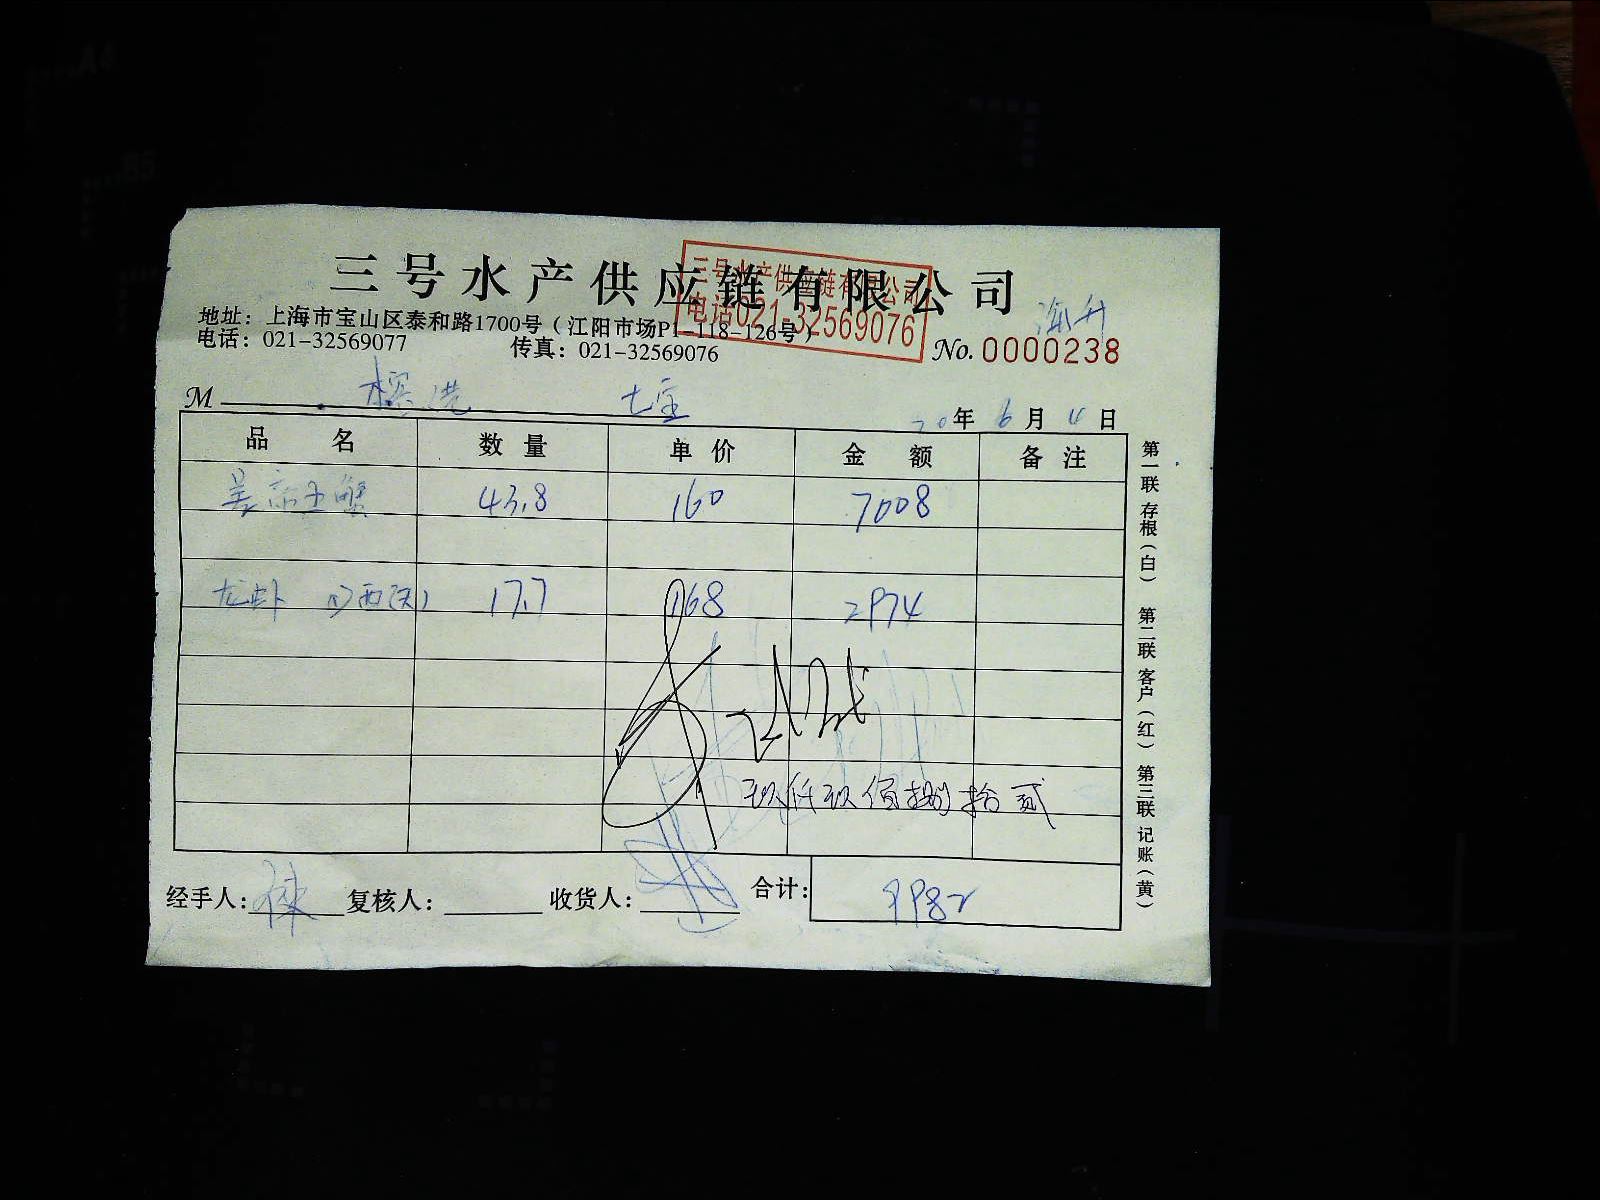 三号水产供应链有限公司
三号水产供应链有限公司
电话021-32569076
地址：上海市宝山区泰和路1700号（江阳市场P1-118-126号）
电话：021-32569077 传真：021-32569076
No. 0000238
M
20年 6月 4日
品名 数量 单价 金额 备注
帝王蟹 43.8 160 7008
龙虾 17.7 168 2974
玖仟玖佰捌拾贰
经手人： 复核人： 收货人： 合计： 9982
第一联 存根（白） 第二联 客户（红） 第三联 记账（黄）